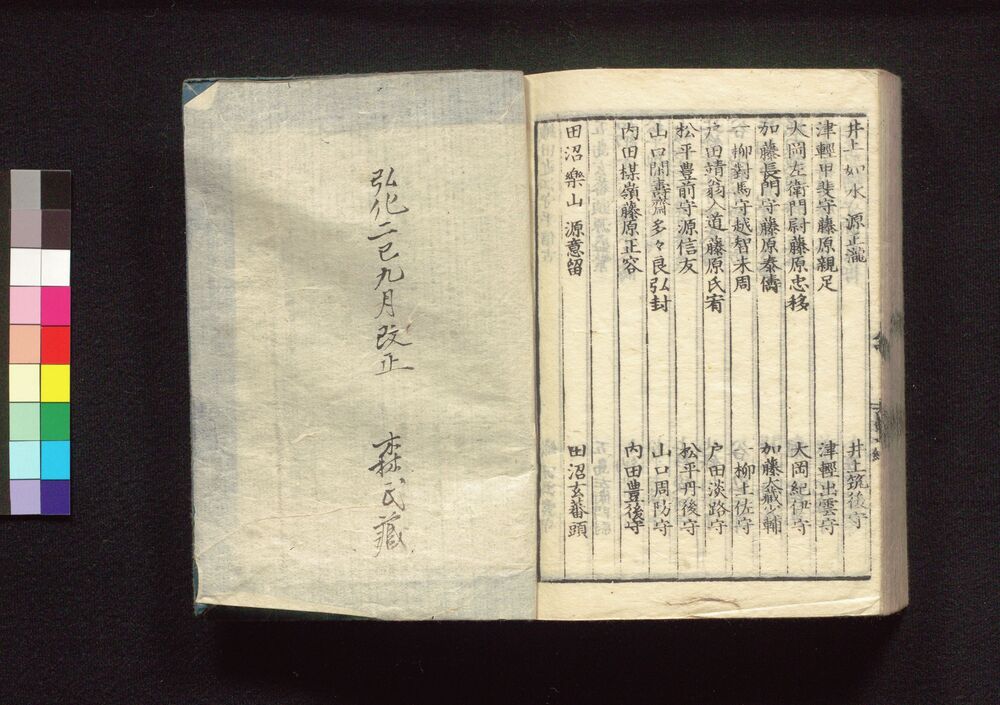 井上如水 源正瀧 井上筑後守
津輕甲斐守藤原親足 津輕出雲守
大岡左衛門尉藤原忠移 大岡紀伊守
加藤長門守藤原泰儔 加藤大藏少輔
一柳對馬守越智末周 一柳土佐守
戸田靖翁入道 藤原氏宥 戸田淡路守
松平豊前守源信友 松平丹後守
山口閒壽齋多々良弘封 山口周防守
内田楳嶺藤原正容 内田豊後守
田沼樂山 源意留 田沼玄蕃頭
弘化二巳九月改正 森氏藏